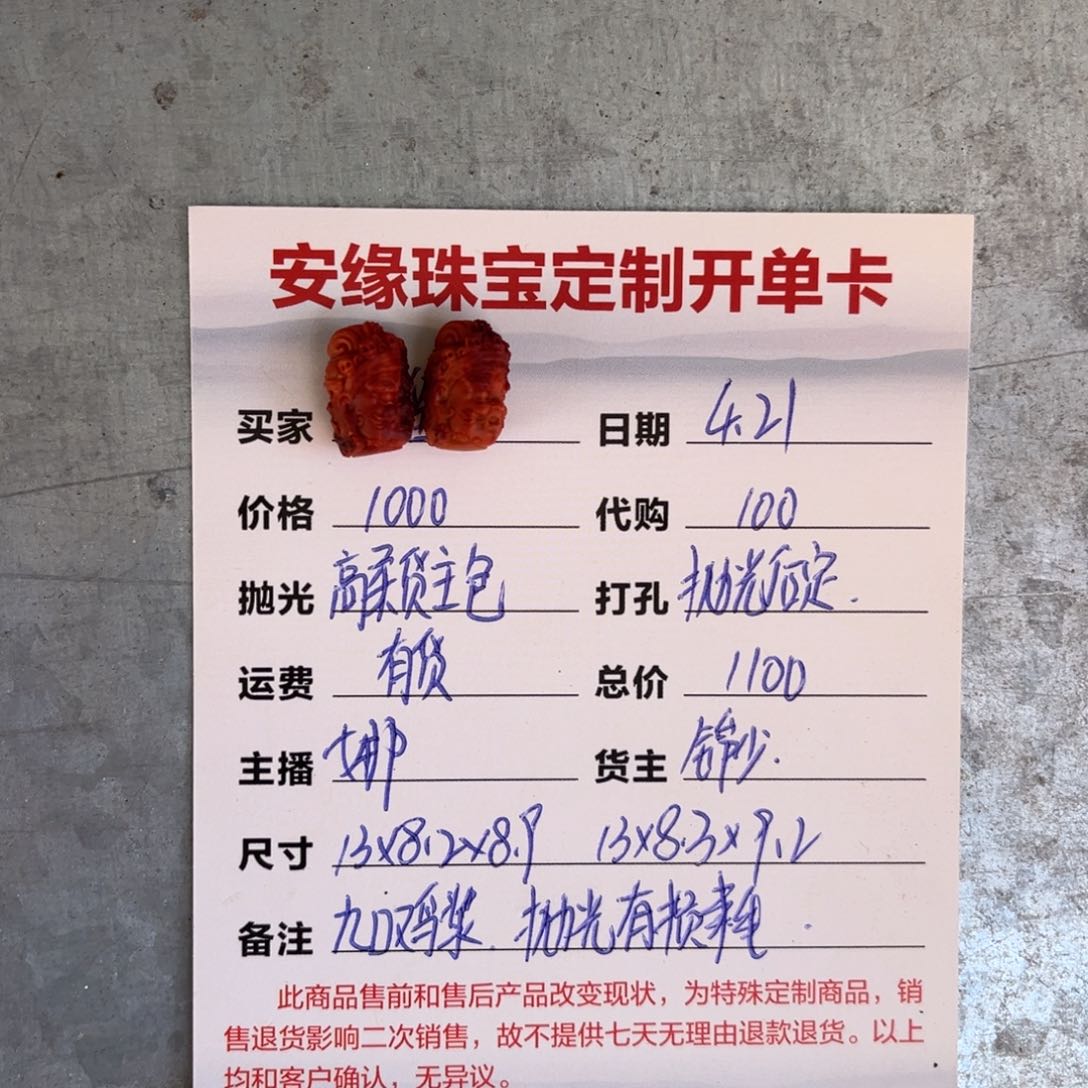 安缘珠宝定制开单卡
买家 日期 4.21
价格 1000 代购 100
抛光 高柔货主包 打孔 抛光后定.
运费 有货 总价 1100
主播 娜 货主
尺寸 13x8.2x8.9 13x8.3x9.2
备注 九口鸡浆 抛光有损耗.
此商品售前和售后产品改变现状，为特殊定制商品，销
售退货影响二次销售，故不提供七天无理由退款退货。以上
均和客户确认，无异议。